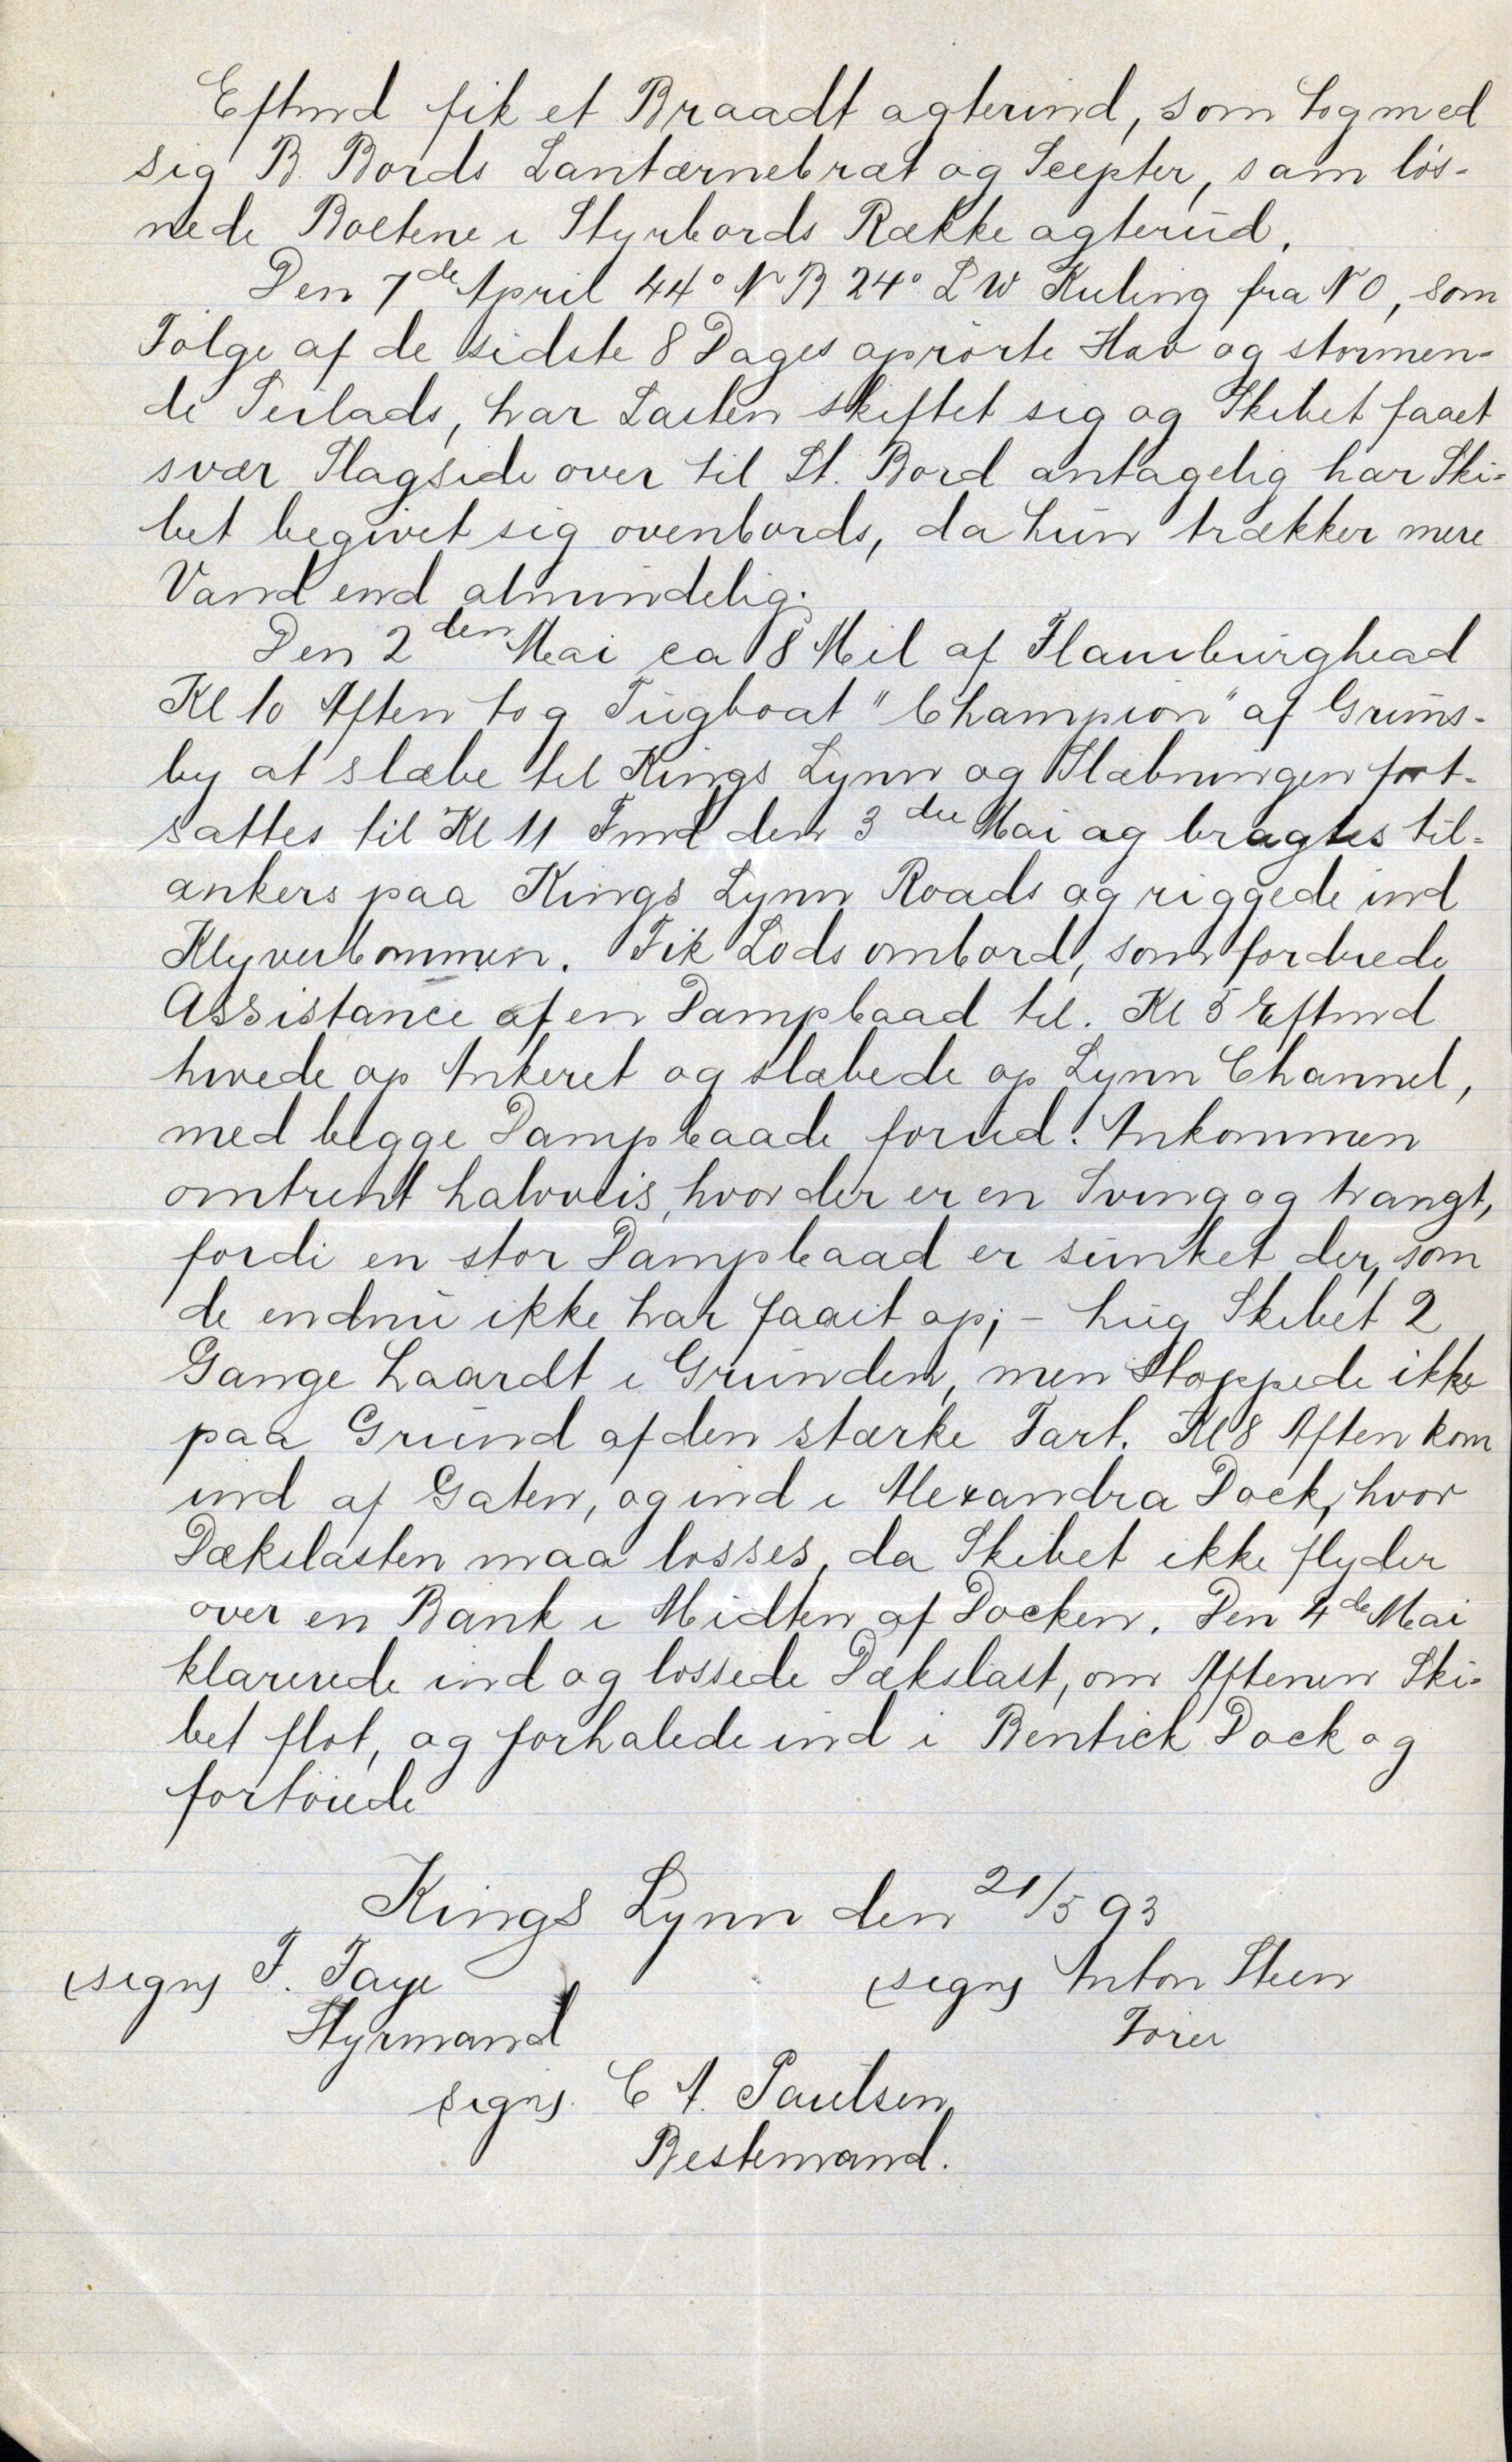 Eftmd fik et Braadt agterind, som tog med
sig B. Bords Lantærnebræt og Scepter, sam løs-
nede Boltene i Styrbords Række agterud.
Den 7de April 44° N B 24° L W Kuling fra N O, som
Følge af de sidste 8 Dages oprørte Hav og stormen-
de Seilads, har Lasten skiftet sig og Skibet faaet
svær Slagside over til St. Bord antagelig har Ski-
bet begivet sig ovenbords, da hun trækker mere
Vand end almindelig.
Den 2den Mai ca 8 Mil af Flamburghead
Kl 10 Aften tog Tugboat "Champion" af Grims-
by at slæbe til Kings Lynn og Slæbningen fort-
sattes til Kl 11 Fmd den 3die Mai og bragtes til-
ankers paa Kings Lynn Roads og riggede ind
Klyverbommen. Fik Lods ombord, som fordrede
Assistance af en Dampbaad til. Kl 5 Eftmd
hivede op Ankeret og slæbede op Lynn Channel,
med begge Dampbaade forud. Ankommen
omtrent halvveis, hvor der er en Sving og trangt,
fordi en stor Dampbaad er sunket der, som
de endnu ikke har faaet op; - hug Skibet 2
Gange haardt i Grunden, men stoppede ikke
paa Grund af den stærke Fart. Kl 8 Aften kom
ind af Gaten, og ind i Alexandra Dock, hvor
Dækslasten maa losses, da Skibet ikke flyder
over en Bank i Midten af Docken. Den 4de Mai
klarerede ind og lossede Dækslast, om Aftenen Ski-
bet flot, og forhalede ind i Bentick Dock og
fortøiede
Kings Lynn den 21/5 93
(sign) F. Faye (sign) Anton Steen
Styrmand Fører
(sign) C A. Paulsen
Bestemand.